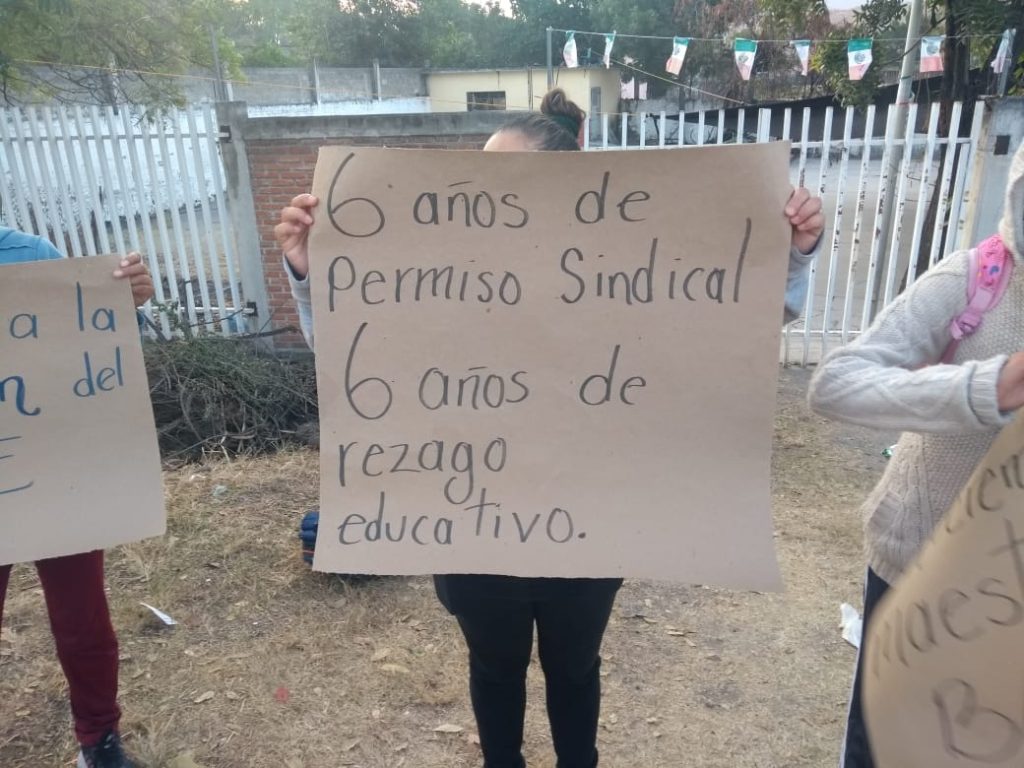 a la
del
6 años de
Permiso Sindical
6 años de
rezago
educativo.